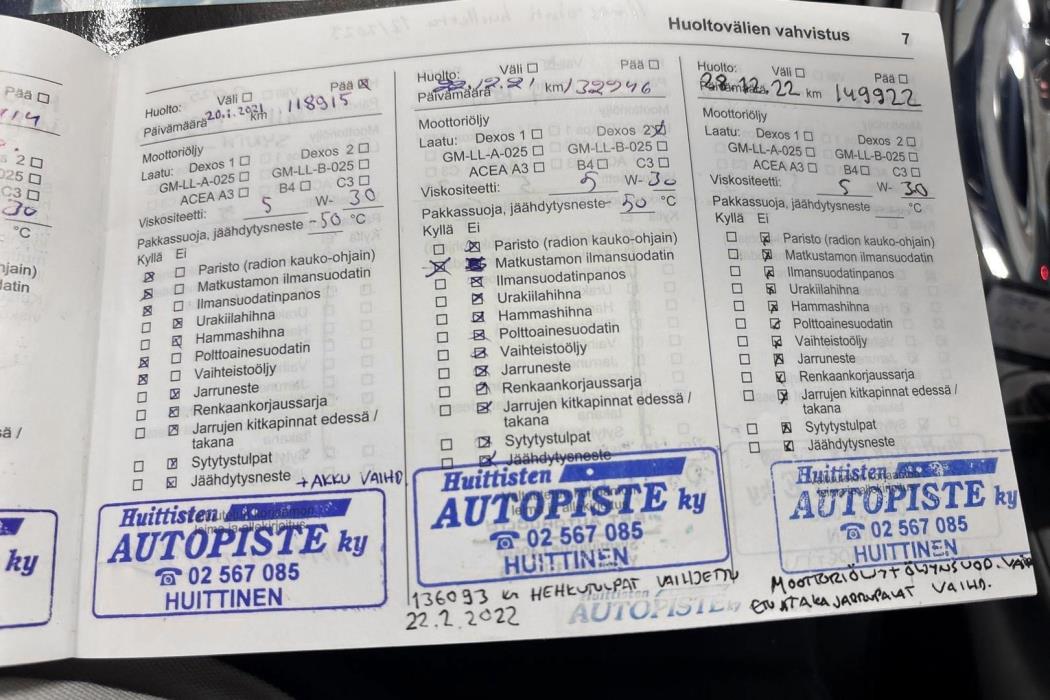 Huoltovälien vahvistus 7
Pää ☐
2 ☐
025 ☐
C3 ☐
30
°C
njain)
latin
sä /
ky
Huolto: Väli ☐ Pää ☒
Päivämäärä 20.1.2021 km 118915
Moottoriöljy
Laatu: Dexos 1 ☐ Dexos 2 ☐
GM-LL-A-025 ☐ GM-LL-B-025 ☐
ACEA A3 ☐ B4 ☐ C3 ☐
Viskositeetti: 5 W- 30
Pakkassuoja, jäähdytysneste -50 °C
Kyllä Ei
☒ ☐ Paristo (radion kauko-ohjain)
☒ ☐ Matkustamon ilmansuodatin
☒ ☐ Ilmansuodatinpanos
☐ ☒ Urakiilahihna
☐ ☒ Hammashihna
☒ ☐ Polttoainesuodatin
☒ ☐ Vaihteistoöljy
☐ ☒ Jarruneste
☐ ☒ Renkaankorjaussarja
☐ ☒ Jarrujen kitkapinnat edessä /
takana
☐ ☒ Sytytystulpat
☐ ☒ Jäähdytysneste + AKKU VAIHD
Huittisten
AUTOPISTE ky
☎ 02 567 085
HUITTINEN
Huolto: Väli ☐ Pää ☐
Päivämäärä 22.12.21 km 132946
Moottoriöljy
Laatu: Dexos 1 ☐ Dexos 2 ☒
GM-LL-A-025 ☐ GM-LL-B-025 ☐
ACEA A3 ☐ B4 ☐ C3 ☐
Viskositeetti: 5 W- 30
Pakkassuoja, jäähdytysneste -50 °C
Kyllä Ei
☐ ☒ Paristo (radion kauko-ohjain)
☒ Matkustamon ilmansuodatin
☐ ☒ Ilmansuodatinpanos
☐ ☒ Urakiilahihna
☐ ☒ Hammashihna
☐ ☒ Polttoainesuodatin
☐ ☒ Vaihteistoöljy
☐ ☒ Jarruneste
☐ ☒ Renkaankorjaussarja
☐ ☒ Jarrujen kitkapinnat edessä /
takana
☐ ☒ Sytytystulpat
☐ ☒ Jäähdytysneste
Huittisten
AUTOPISTE ky
☎ 02 567 085
HUITTINEN
136093 km HEHKUTULPAT VAIHDETTU
22.2.2022
Huittisten
AUTOPISTE ky
Huolto: Väli ☐ Pää ☐
Päivämäärä 28.12.22 km 149922
Moottoriöljy
Laatu: Dexos 1 ☐ Dexos 2 ☐
GM-LL-A-025 ☐ GM-LL-B-025 ☐
ACEA A3 ☐ B4 ☐ C3 ☐
Viskositeetti: 5 W- 30
Pakkassuoja, jäähdytysneste °C
Kyllä Ei
☐ ☒ Paristo (radion kauko-ohjain)
☐ ☒ Matkustamon ilmansuodatin
☐ ☒ Ilmansuodatinpanos
☐ ☒ Urakiilahihna
☐ ☒ Hammashihna
☐ ☒ Polttoainesuodatin
☐ ☒ Vaihteistoöljy
☐ ☒ Jarruneste
☐ ☒ Renkaankorjaussarja
☐ ☒ Jarrujen kitkapinnat edessä /
takana
☐ ☒ Sytytystulpat
☐ ☒ Jäähdytysneste
Huittisten
AUTOPISTE ky
☎ 02 567 085
HUITTINEN
MOOTTORIÖLJY + ÖLJYNSUOD. VAIH
ETU JA TAKA JARRUPALAT VAIHD.